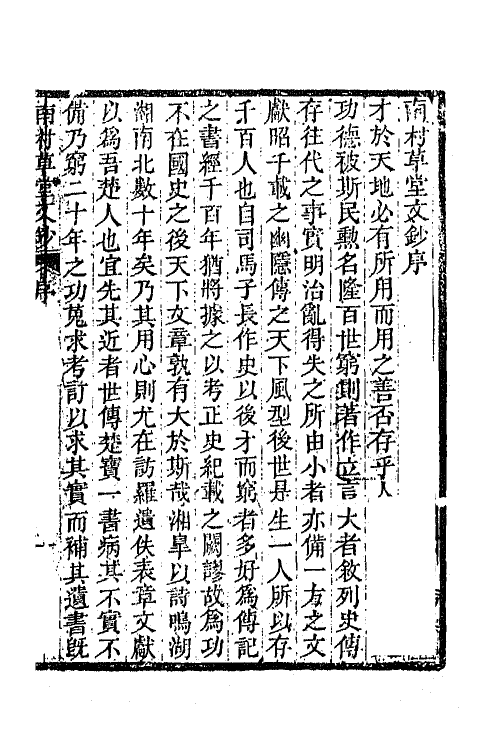 南村草堂文鈔序
才於天地必有所用而用之善否存乎人
功德被斯民勲名隆百世窮則著作立言大者敘列史傳
存往代之事實明治亂得失之所由小者亦備一方之文
獻昭千載之幽隱傳之天下風型後世是生一人所以存
千百人也自司馬子長作史以後才而窮者多好爲傳記
之書經千百年猶將據之以考正史紀載之闕謬故爲功
不在國史之後天下文章孰有大於斯哉湘皐以詩鳴湖
湖南北數十年矣乃其用心則尤在訪羅遺佚表章文獻
以爲吾楚人也宜先其近者世傳楚寶一書病其不實不
備乃窮二十年之功蒐求考訂以求其實而補其遺書旣
南村草堂文鈔 序 一